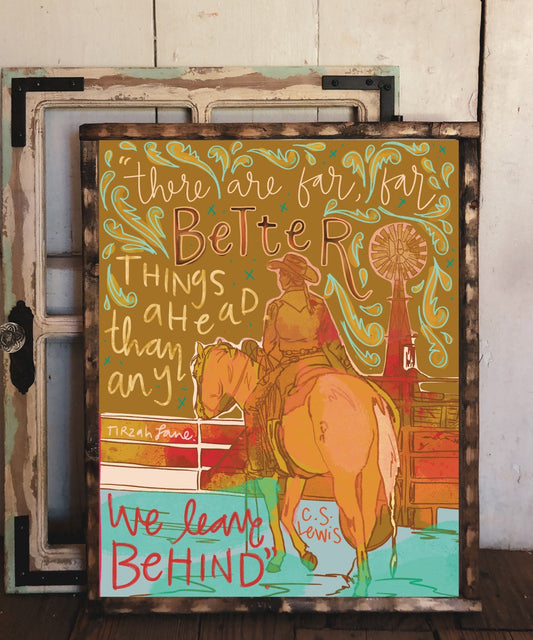 "there are far, far
BeTTeR
THINGS
aHeaD
than
any
TIRZah Lane.
We leave
BeHIND"
C.S.
Lewis